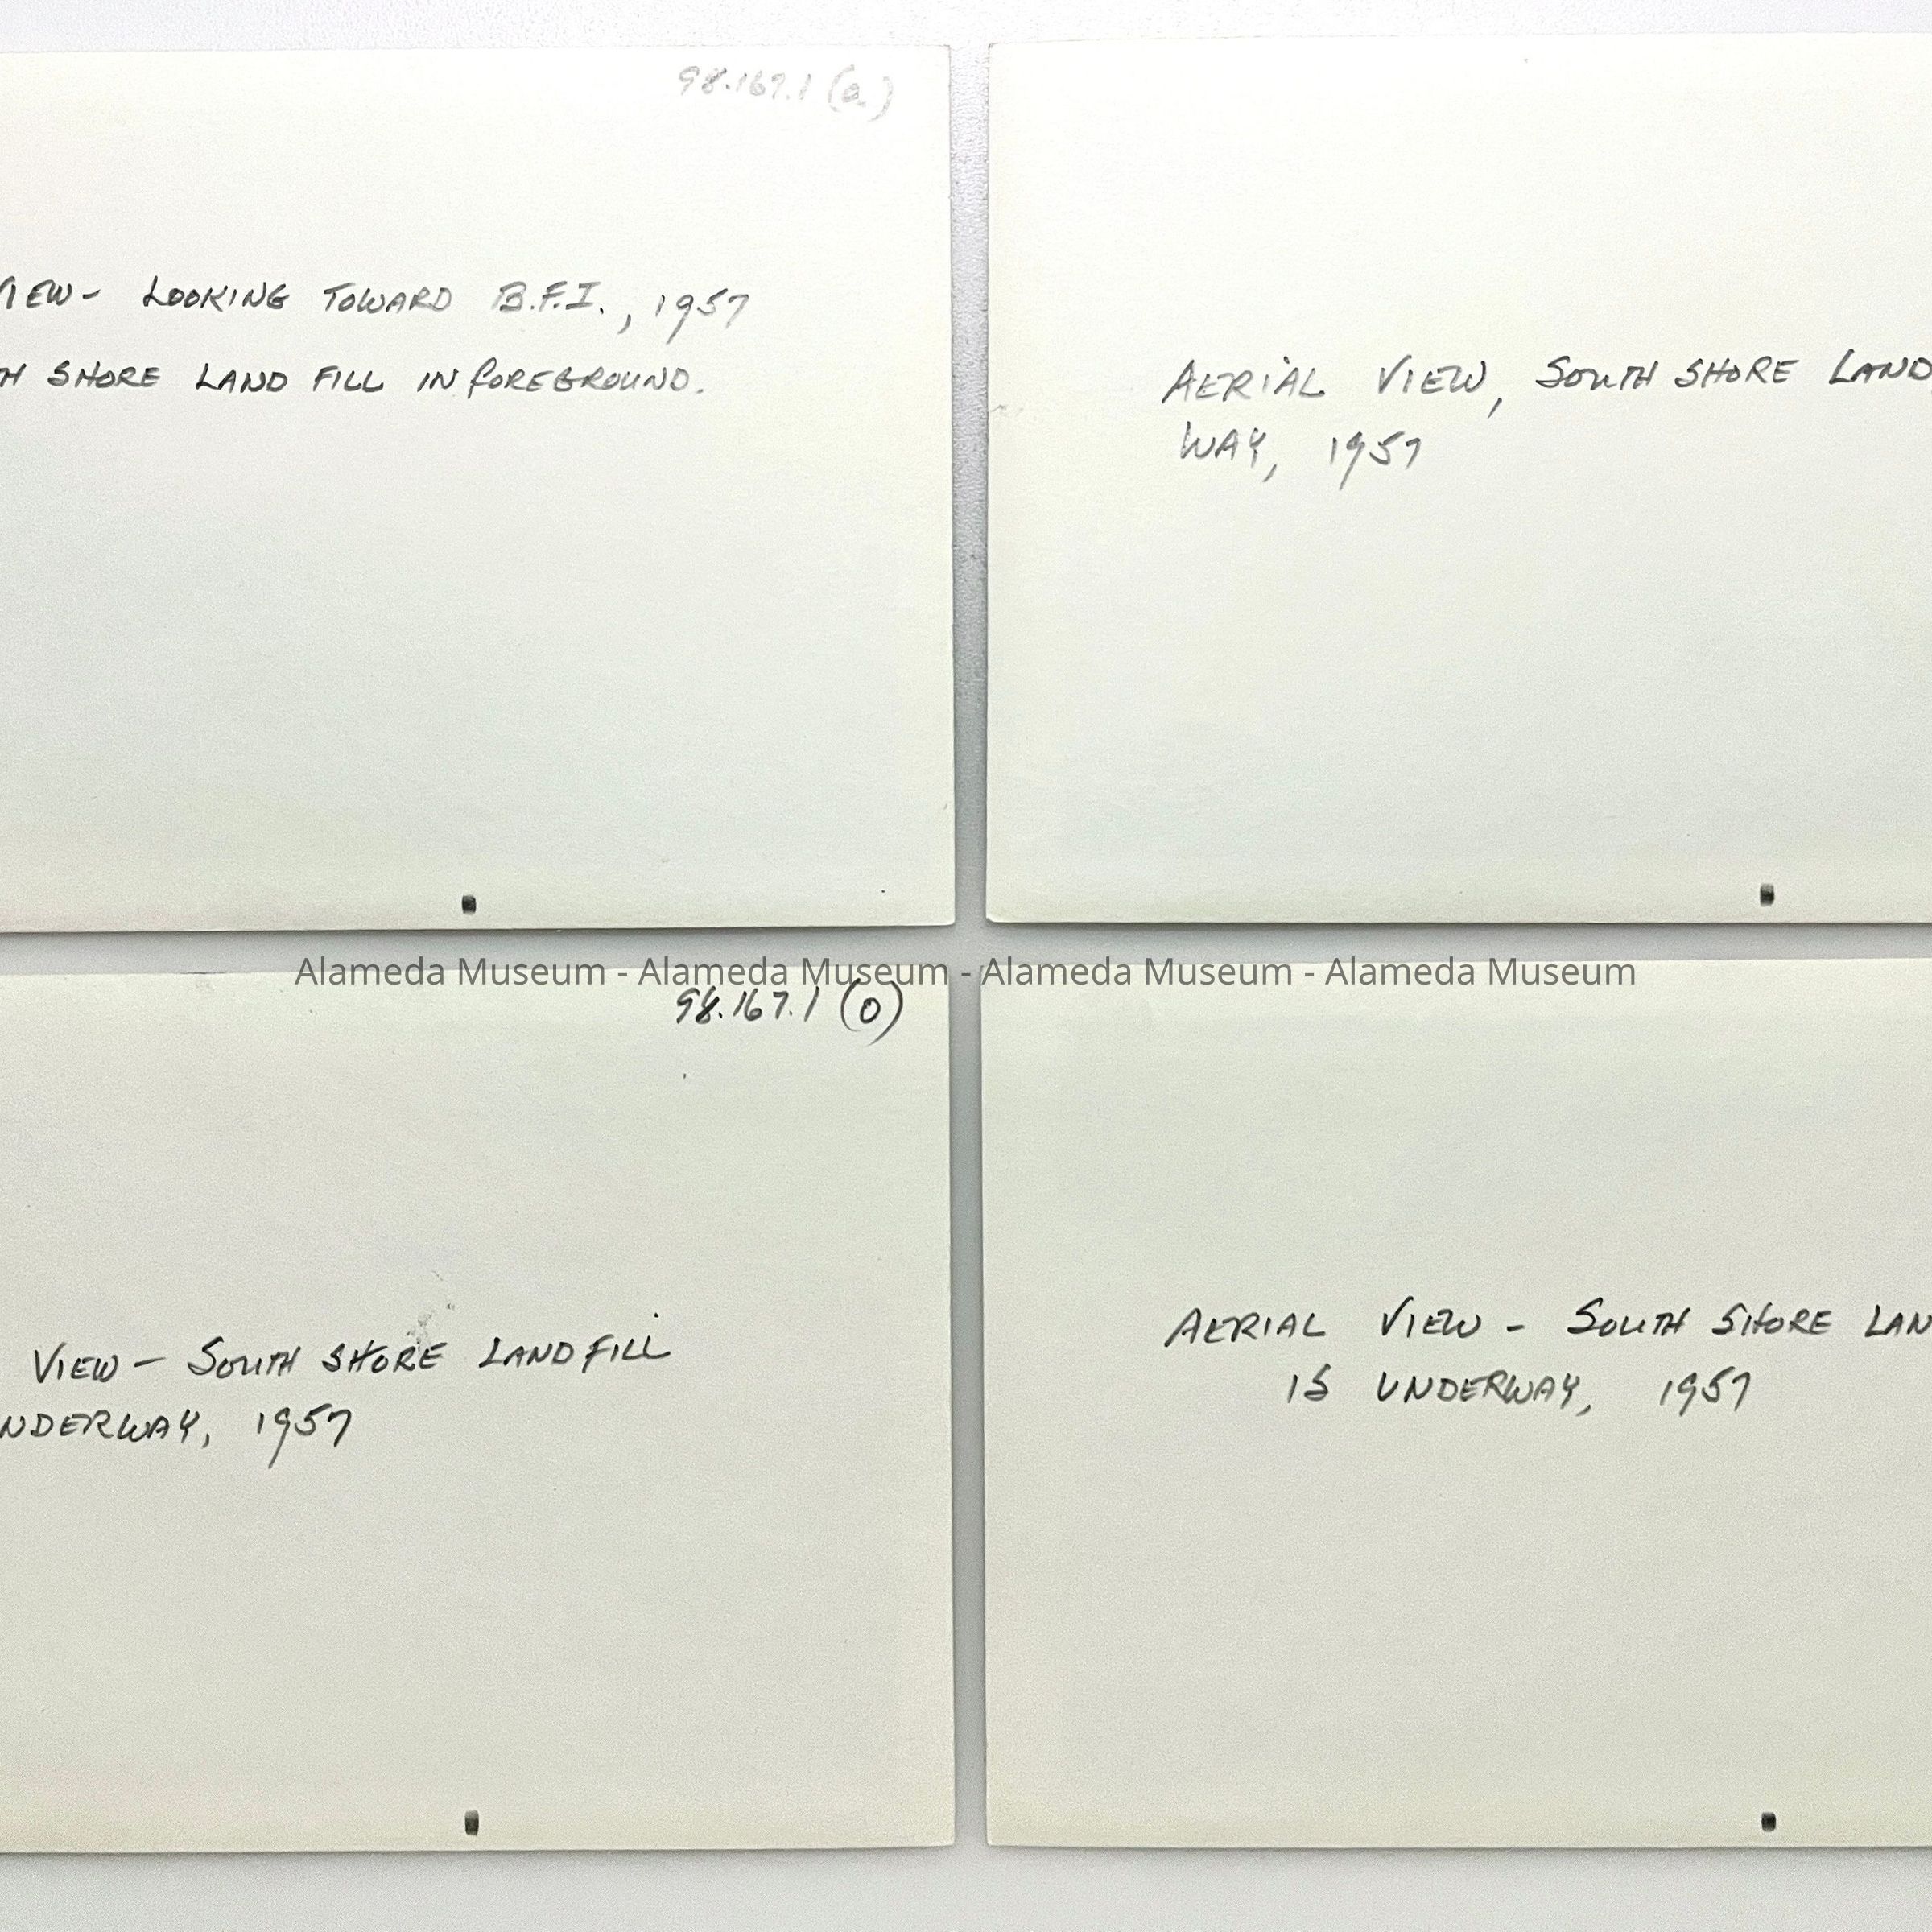 98.167.1 (a)
VIEW- LOOKING TOWARD B.F.I., 1957
TH SHORE LAND FILL IN FOREGROUND.
AERIAL VIEW, SOUTH SHORE LAND
WAY, 1957
Alameda Museum - Alameda Museum - Alameda Museum - Alameda Museum
98.167.1 (0)
VIEW - SOUTH SHORE LANDFILL
NDERWAY, 1957
AERIAL VIEW - SOUTH SHORE LAN
IS UNDERWAY, 1957